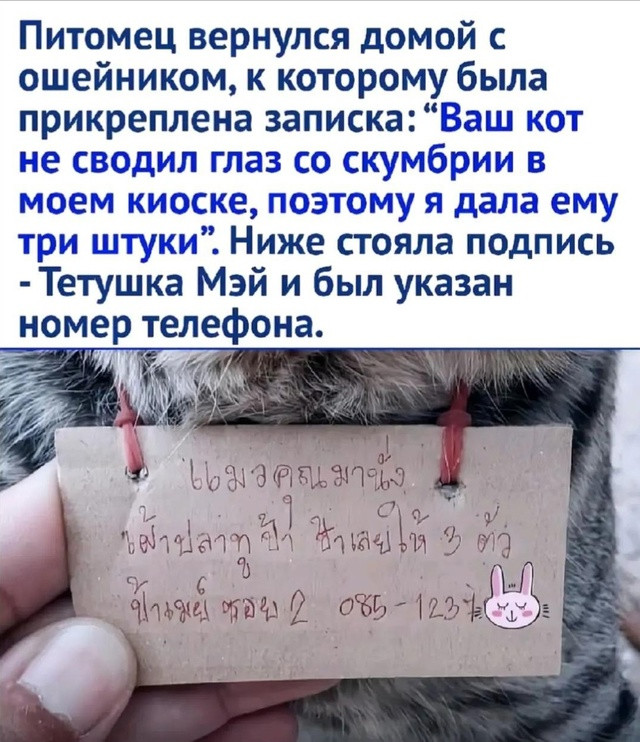 Питомец вернулся домой с
ошейником, к которому была
прикреплена записка: “Ваш кот
не сводил глаз со скумбрии в
моем киоске, поэтому я дала ему
три штуки”. Ниже стояла подпись
- Тетушка Мэй и был указан
номер телефона.
แมวคุณมานั่ง
เฝ้าปลาทูป้า ป้าเลยให้ 3 ตัว
ป้าเมย์ ซอย 2 085-1237